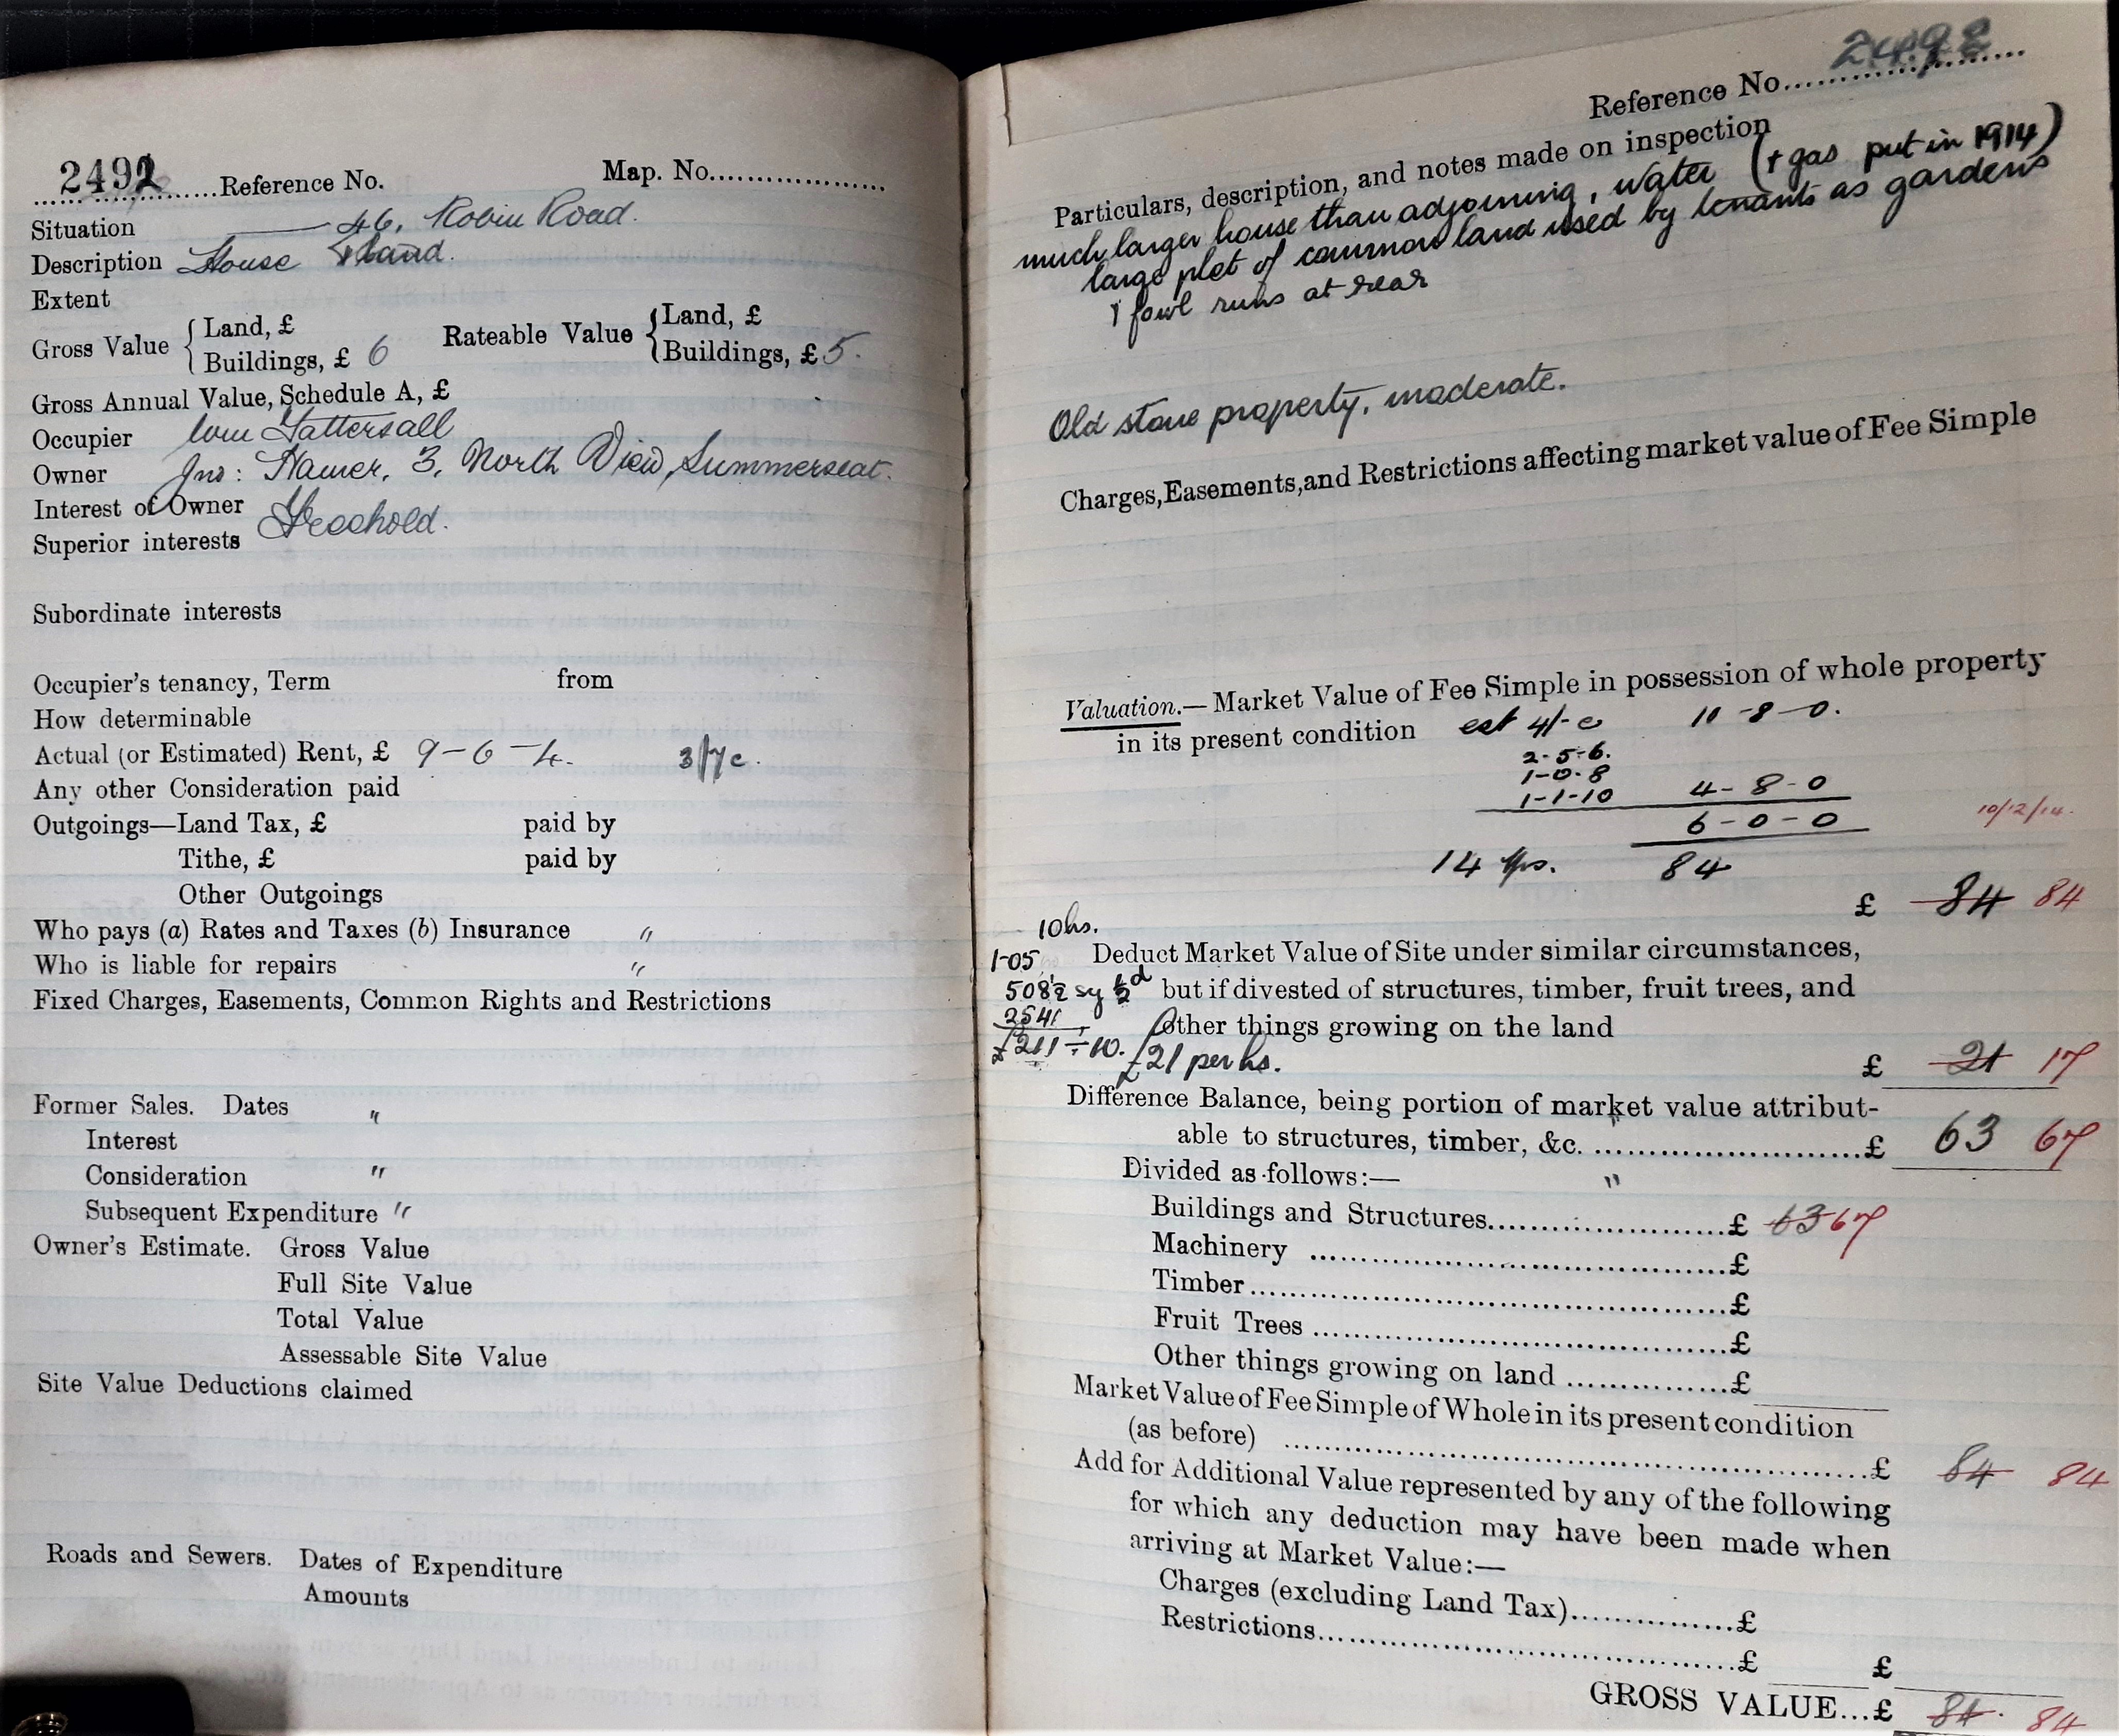 2492 ......Reference No. Map. No..................
Situation 46, Robin Road.
Description House & land.
Extent
Gross Value { Land, £ Rateable Value { Land, £
Buildings, £ 6 Buildings, £ 5.
Gross Annual Value, Schedule A, £
Occupier Wm Tattersall
Owner Jno: Hamer, 3, North View, Summerseat.
Interest of Owner Freehold.
Superior interests
Subordinate interests
Occupier's tenancy, Term from
How determinable
Actual (or Estimated) Rent, £ 9-6-4. 3/7 c.
Any other Consideration paid
Outgoings—Land Tax, £ paid by
Tithe, £ paid by
Other Outgoings
Who pays (a) Rates and Taxes (b) Insurance "
Who is liable for repairs "
Fixed Charges, Easements, Common Rights and Restrictions
Former Sales. Dates "
Interest
Consideration "
Subsequent Expenditure "
Owner's Estimate. Gross Value
Full Site Value
Total Value
Assessable Site Value
Site Value Deductions claimed
Roads and Sewers. Dates of Expenditure
Amounts
Reference No.....................
Particulars, description, and notes made on inspection
much larger house than adjoining, water (+ gas put in 1914)
large plot of common land used by tenants as gardens
& fowl runs at rear
Old stone property, moderate.
Charges, Easements, and Restrictions affecting market value of Fee Simple
Valuation.— Market Value of Fee Simple in possession of whole property
in its present condition est 4/- c 10-8-0.
2-5-6.
1-0-8
1-1-10 4-8-0
6-0-0 10/12/14.
14 yrs. 84
£ 84 84
10 hs.
1-05 Deduct Market Value of Site under similar circumstances,
5082 sy ½d but if divested of structures, timber, fruit trees, and
2541 other things growing on the land
£211 ÷ 10. £21 per hs. £ 21 17
Difference Balance, being portion of market value attribut-
able to structures, timber, &c. ..........................£ 63 67
Divided as follows:— "
Buildings and Structures........................£ 63 67
Machinery ..........................................£
Timber................................................£
Fruit Trees ..........................................£
Other things growing on land ................£
Market Value of Fee Simple of Whole in its present condition
(as before) ..........................................................£ 84 84
Add for Additional Value represented by any of the following
for which any deduction may have been made when
arriving at Market Value:—
Charges (excluding Land Tax)................£
Restrictions..........................................£ £
GROSS VALUE...£ 84. 84